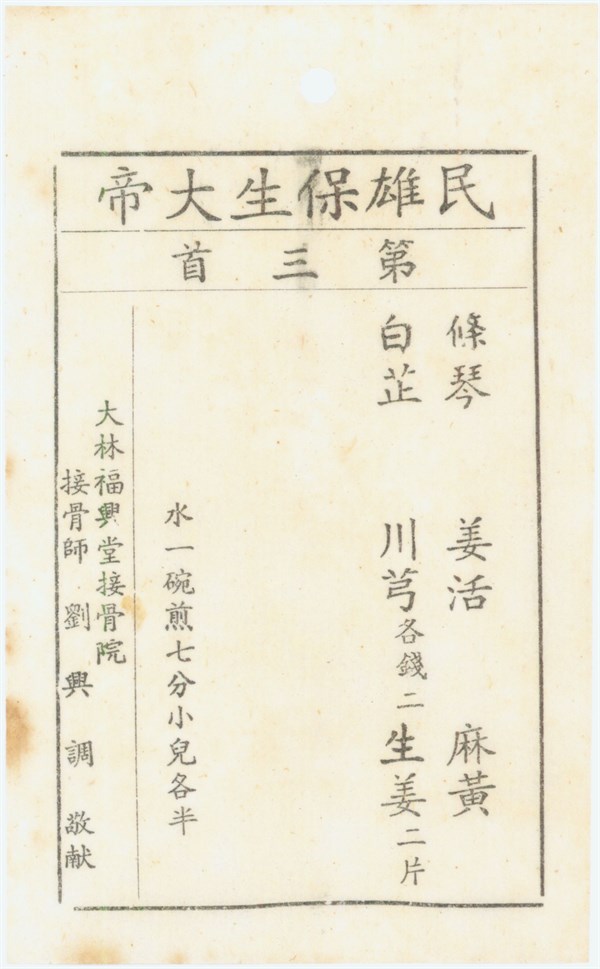 民雄保生大帝
第三首
條琴 姜活 麻黃
白芷 川芎各錢二 生姜二片
水一碗煎七分小兒各半
大林福興堂接骨院
接骨師 劉興調 敬献